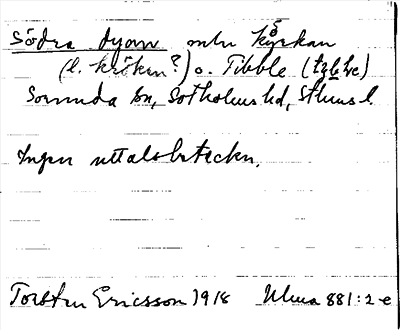 Södra dyan mln kyrkan
(l. kröken?) o. Tibble (
Sorunda sn, Sotholms hd, Sthms l.
Ingen uttalsbeteckn.
Torsten Ericsson 1918 Ulma 881:2-e